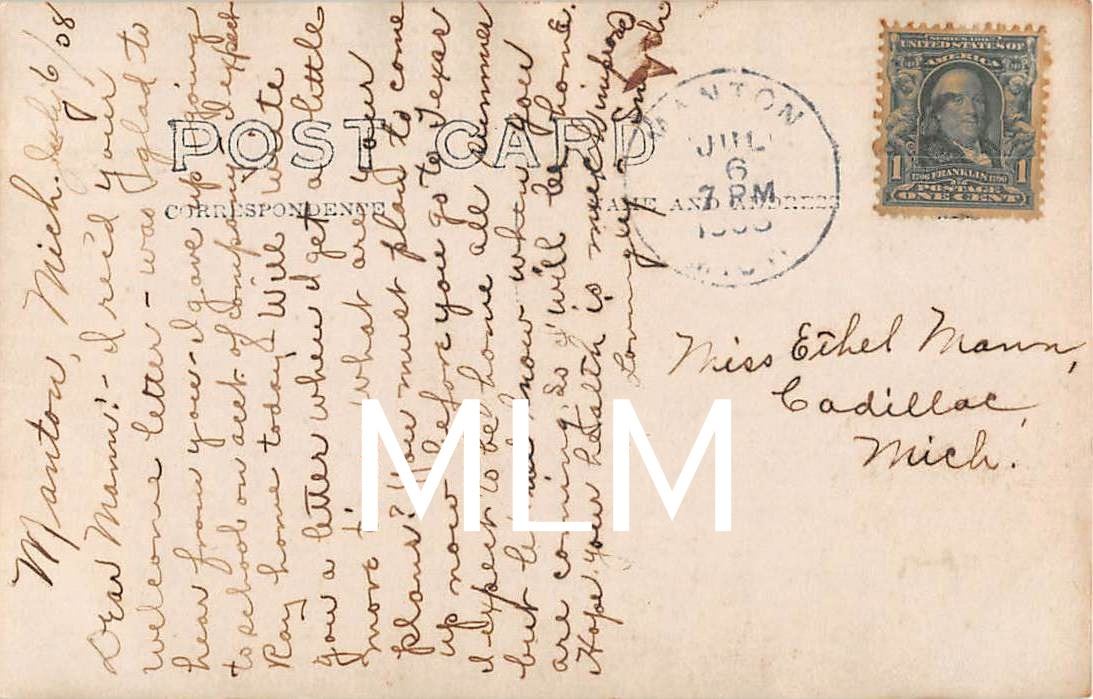 Manton, Mich. July 6/08
Dear Mann:- I rec'd your
welcome letter - was glad to
hear from you - I gave up going
to school on acct. of company. I expect
Ray home today. Will write
you a letter when I get a little
more time. what are your
plans? You must plan to come
up now before you go to Texas
I expect to be home all summer
but let me know when you
are coming so I will be home.
Hope your health is much improved
Lovingly
POST CARD
CORRESPONDENCE
NAME AND ADDRESS
MANTON
JUL
6
7 PM
MICH
SERIES 1902
UNITED STATES OF
AMERICA
1 1
1706 FRANKLIN 1790
POSTAGE
ONE CENT
Miss Ethel Mann,
Cadillac,
Mich.
MLM